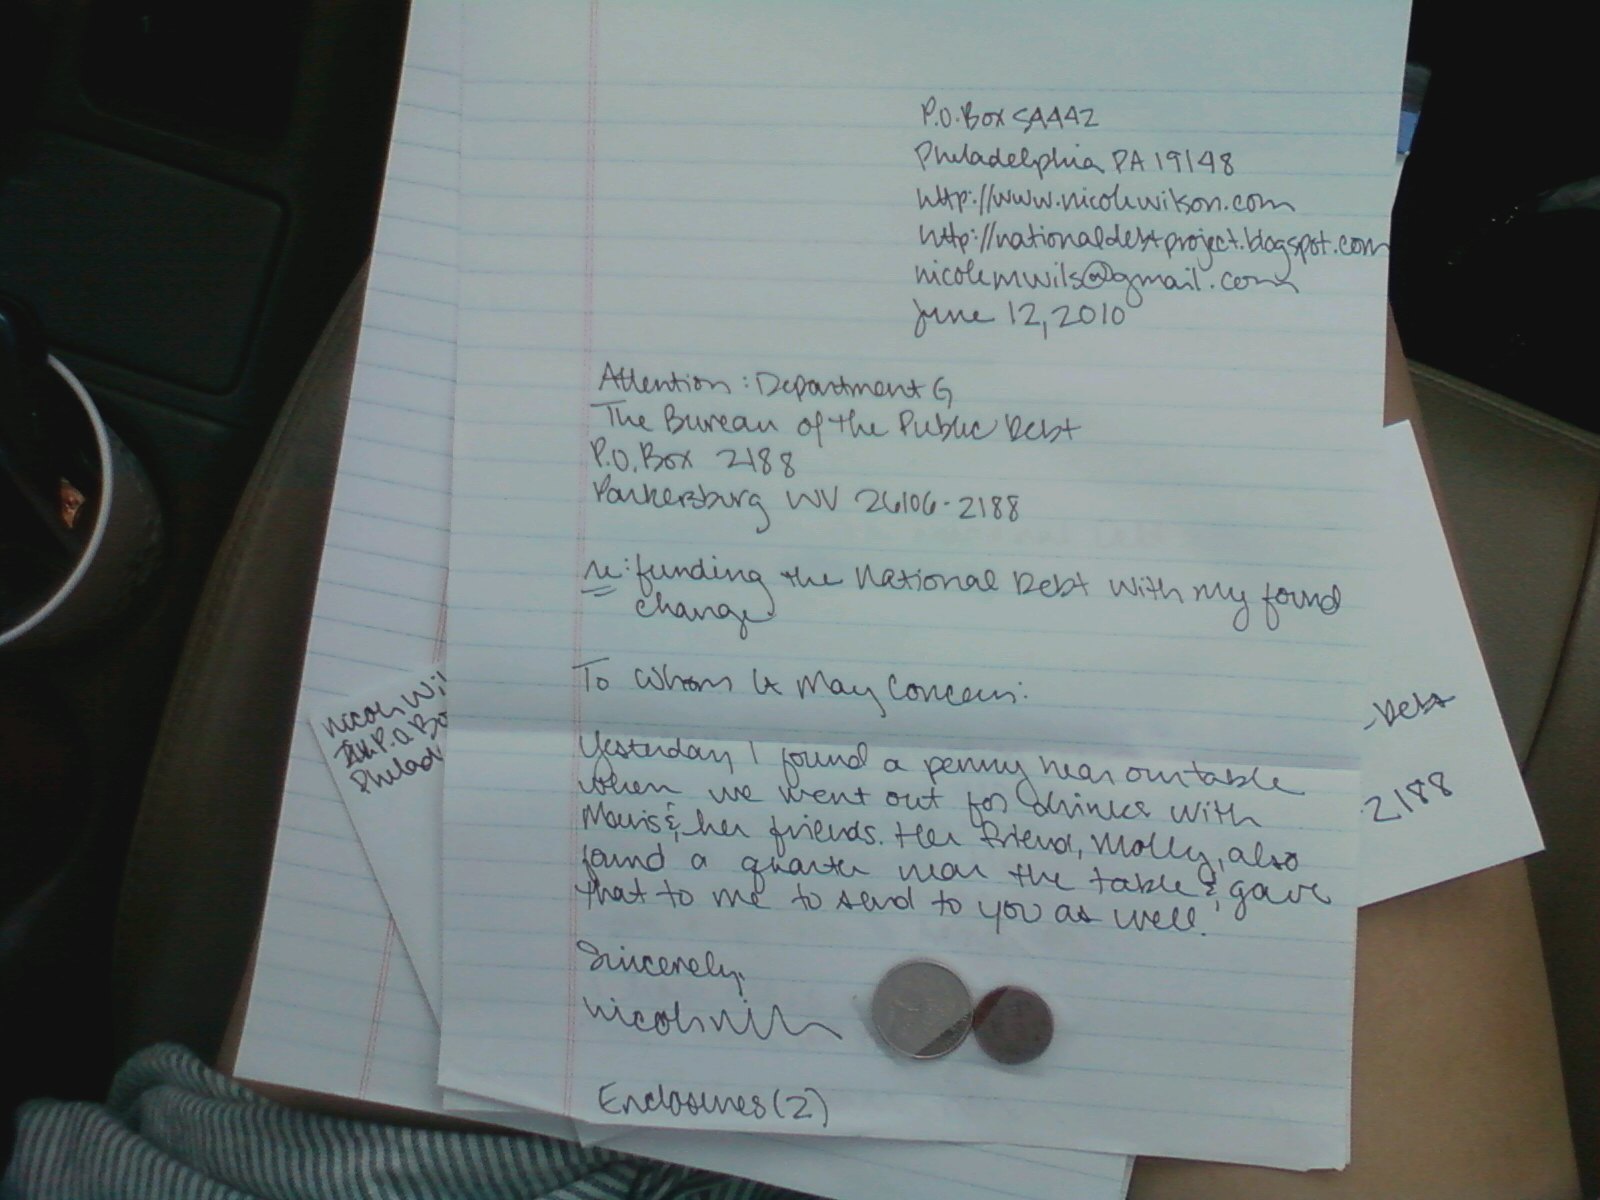 P.O. Box 54442
Philadelphia PA 19148
http://www.nicolewilson.com
http://nationaldebtproject.blogspot.com
nicolemwils@gmail.com
June 12, 2010
Attention: Department G
The Bureau of the Public Debt
P.O. Box 2188
Parkersburg WV 26106-2188
re: funding the National Debt with my found
change
To Whom It May Concern:
Yesterday I found a penny near our table
when we went out for drinks with
Mavis & her friends. Her friend, Molly, also
found a quarter near the table & gave
that to me to send to you as well.
Sincerely,
Enclosures (2)
Nicole Wi
P.O. Bo
Philad
Debt
2188